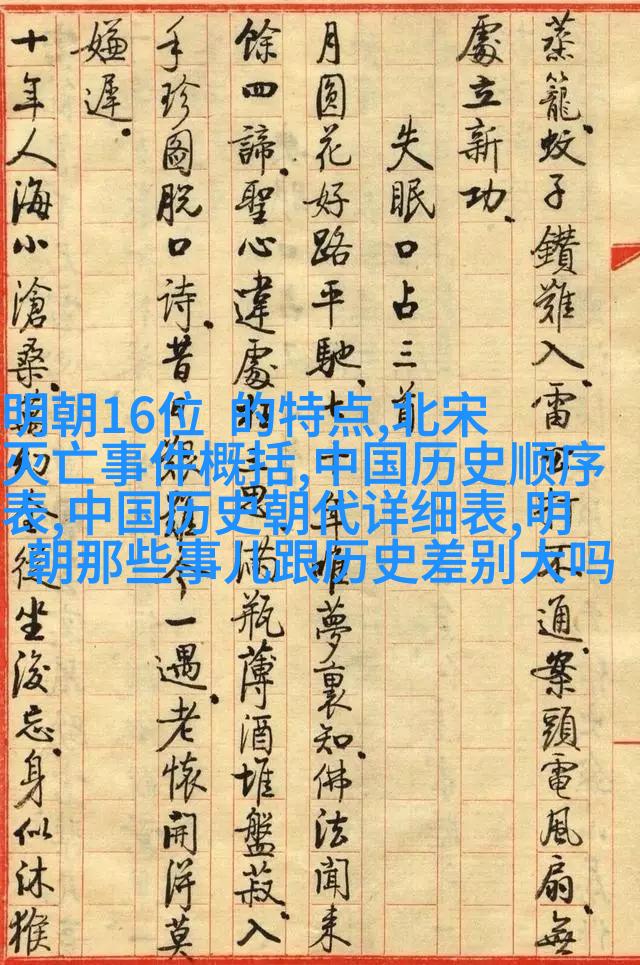 蒸籠蚊子鑽難入雷打不通案頭電風扇無
處立新功
失眠口占三首
月圓花好路平馳七十一年唯夢裏知佛法聞來
餘四諦聖心違處三思滿瓶薄酒堆盤菽入
手珍圖脫口詩昔今一遇老懷開得莫
嫌遲
十年人海小滄桑幻後坐忘身似沐猴
明朝16位 的特点,北宋
灭亡事件概括,中国历史顺序
表,中国历史朝代详细表,明
朝那些事儿跟历史差别大吗